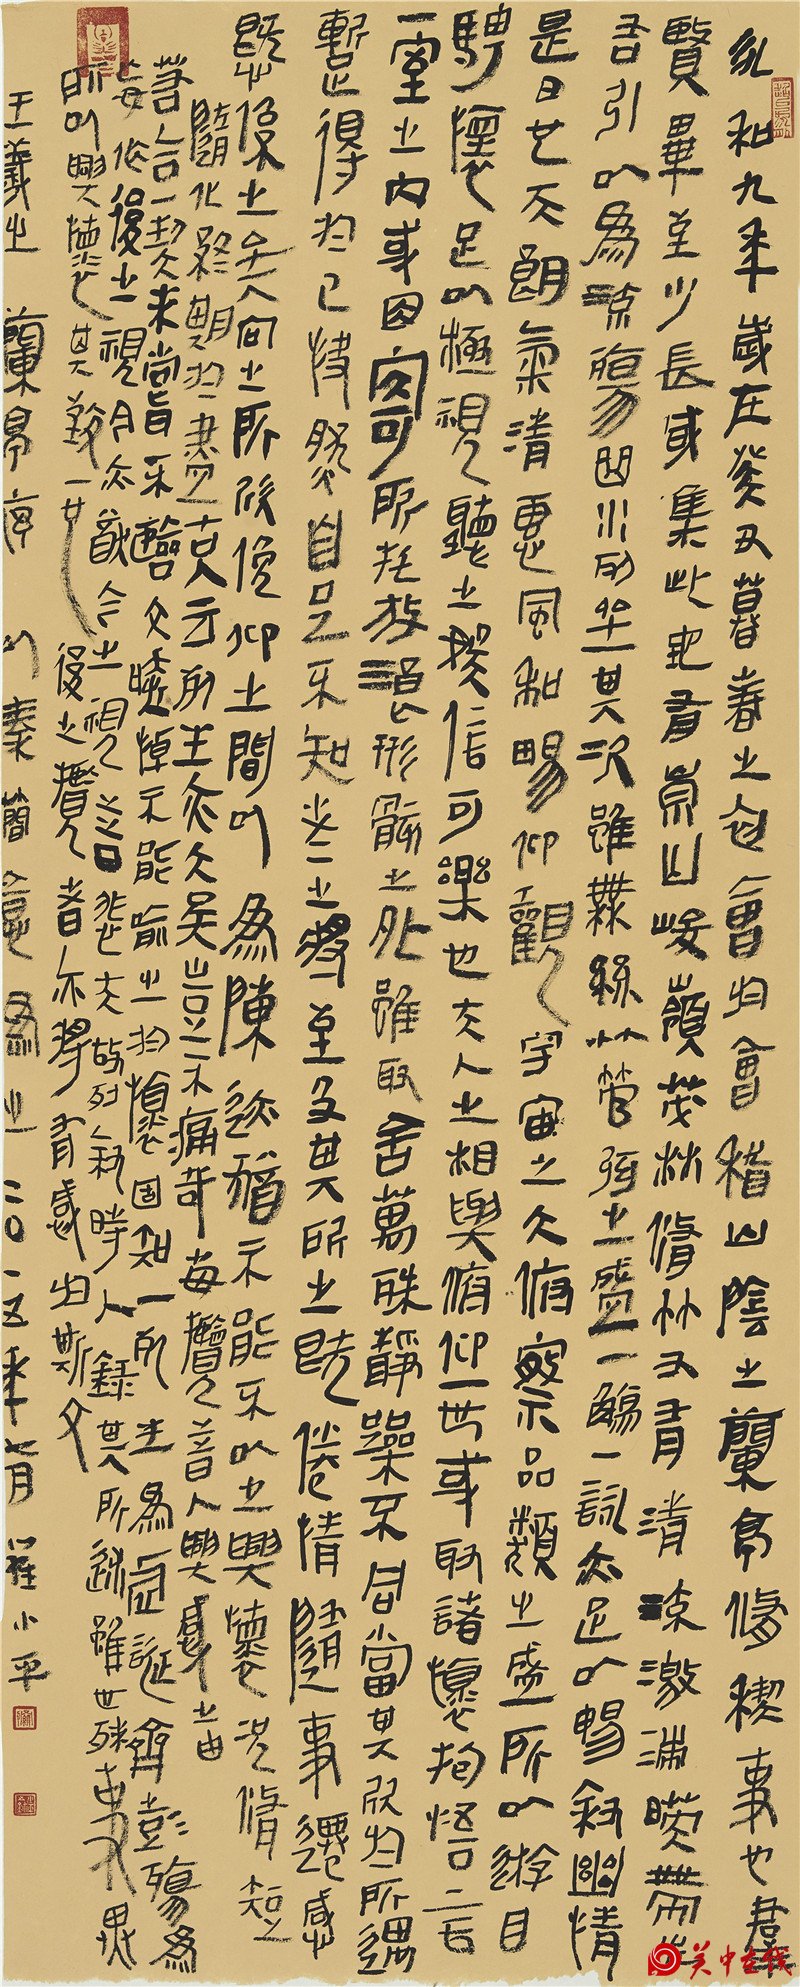 永和九年歲在癸丑暮春之初會於會稽山陰之蘭亭脩稧事也群
賢畢至少長咸集此地有崇山峻嶺茂林脩竹又有清流激湍暎帶左
右引以為流觴曲水列坐其次雖無絲竹管弦之盛一觴一詠亦足以暢敘幽情
是日也天朗氣清惠風和暢仰觀宇宙之大俯察品類之盛所以遊目
騁懷足以極視聽之娛信可樂也夫人之相與俯仰一世或取諸懷抱悟言
一室之內或因寄所託放浪形骸之外雖取舍萬殊靜躁不同當其欣於所遇
暫得於己快然自足不知老之將至及其所之既倦情隨事遷感
慨係之矣向之所欣俛仰之間以為陳迹猶不能不以之興懷況脩短
隨化終期於盡古人云死生亦大矣豈不痛哉每攬昔人興感之由
若合一契未嘗不臨文嗟悼不能喻之於懷固知一死生為虛誕齊彭殤為
妄作後之視今亦猶今之視昔悲夫故列敘時人錄其所述雖世殊事異
所以興懷其致一也後之攬者亦將有感於斯文
王羲之蘭亭序以秦簡意為之二〇一五年七月小平
关中在线